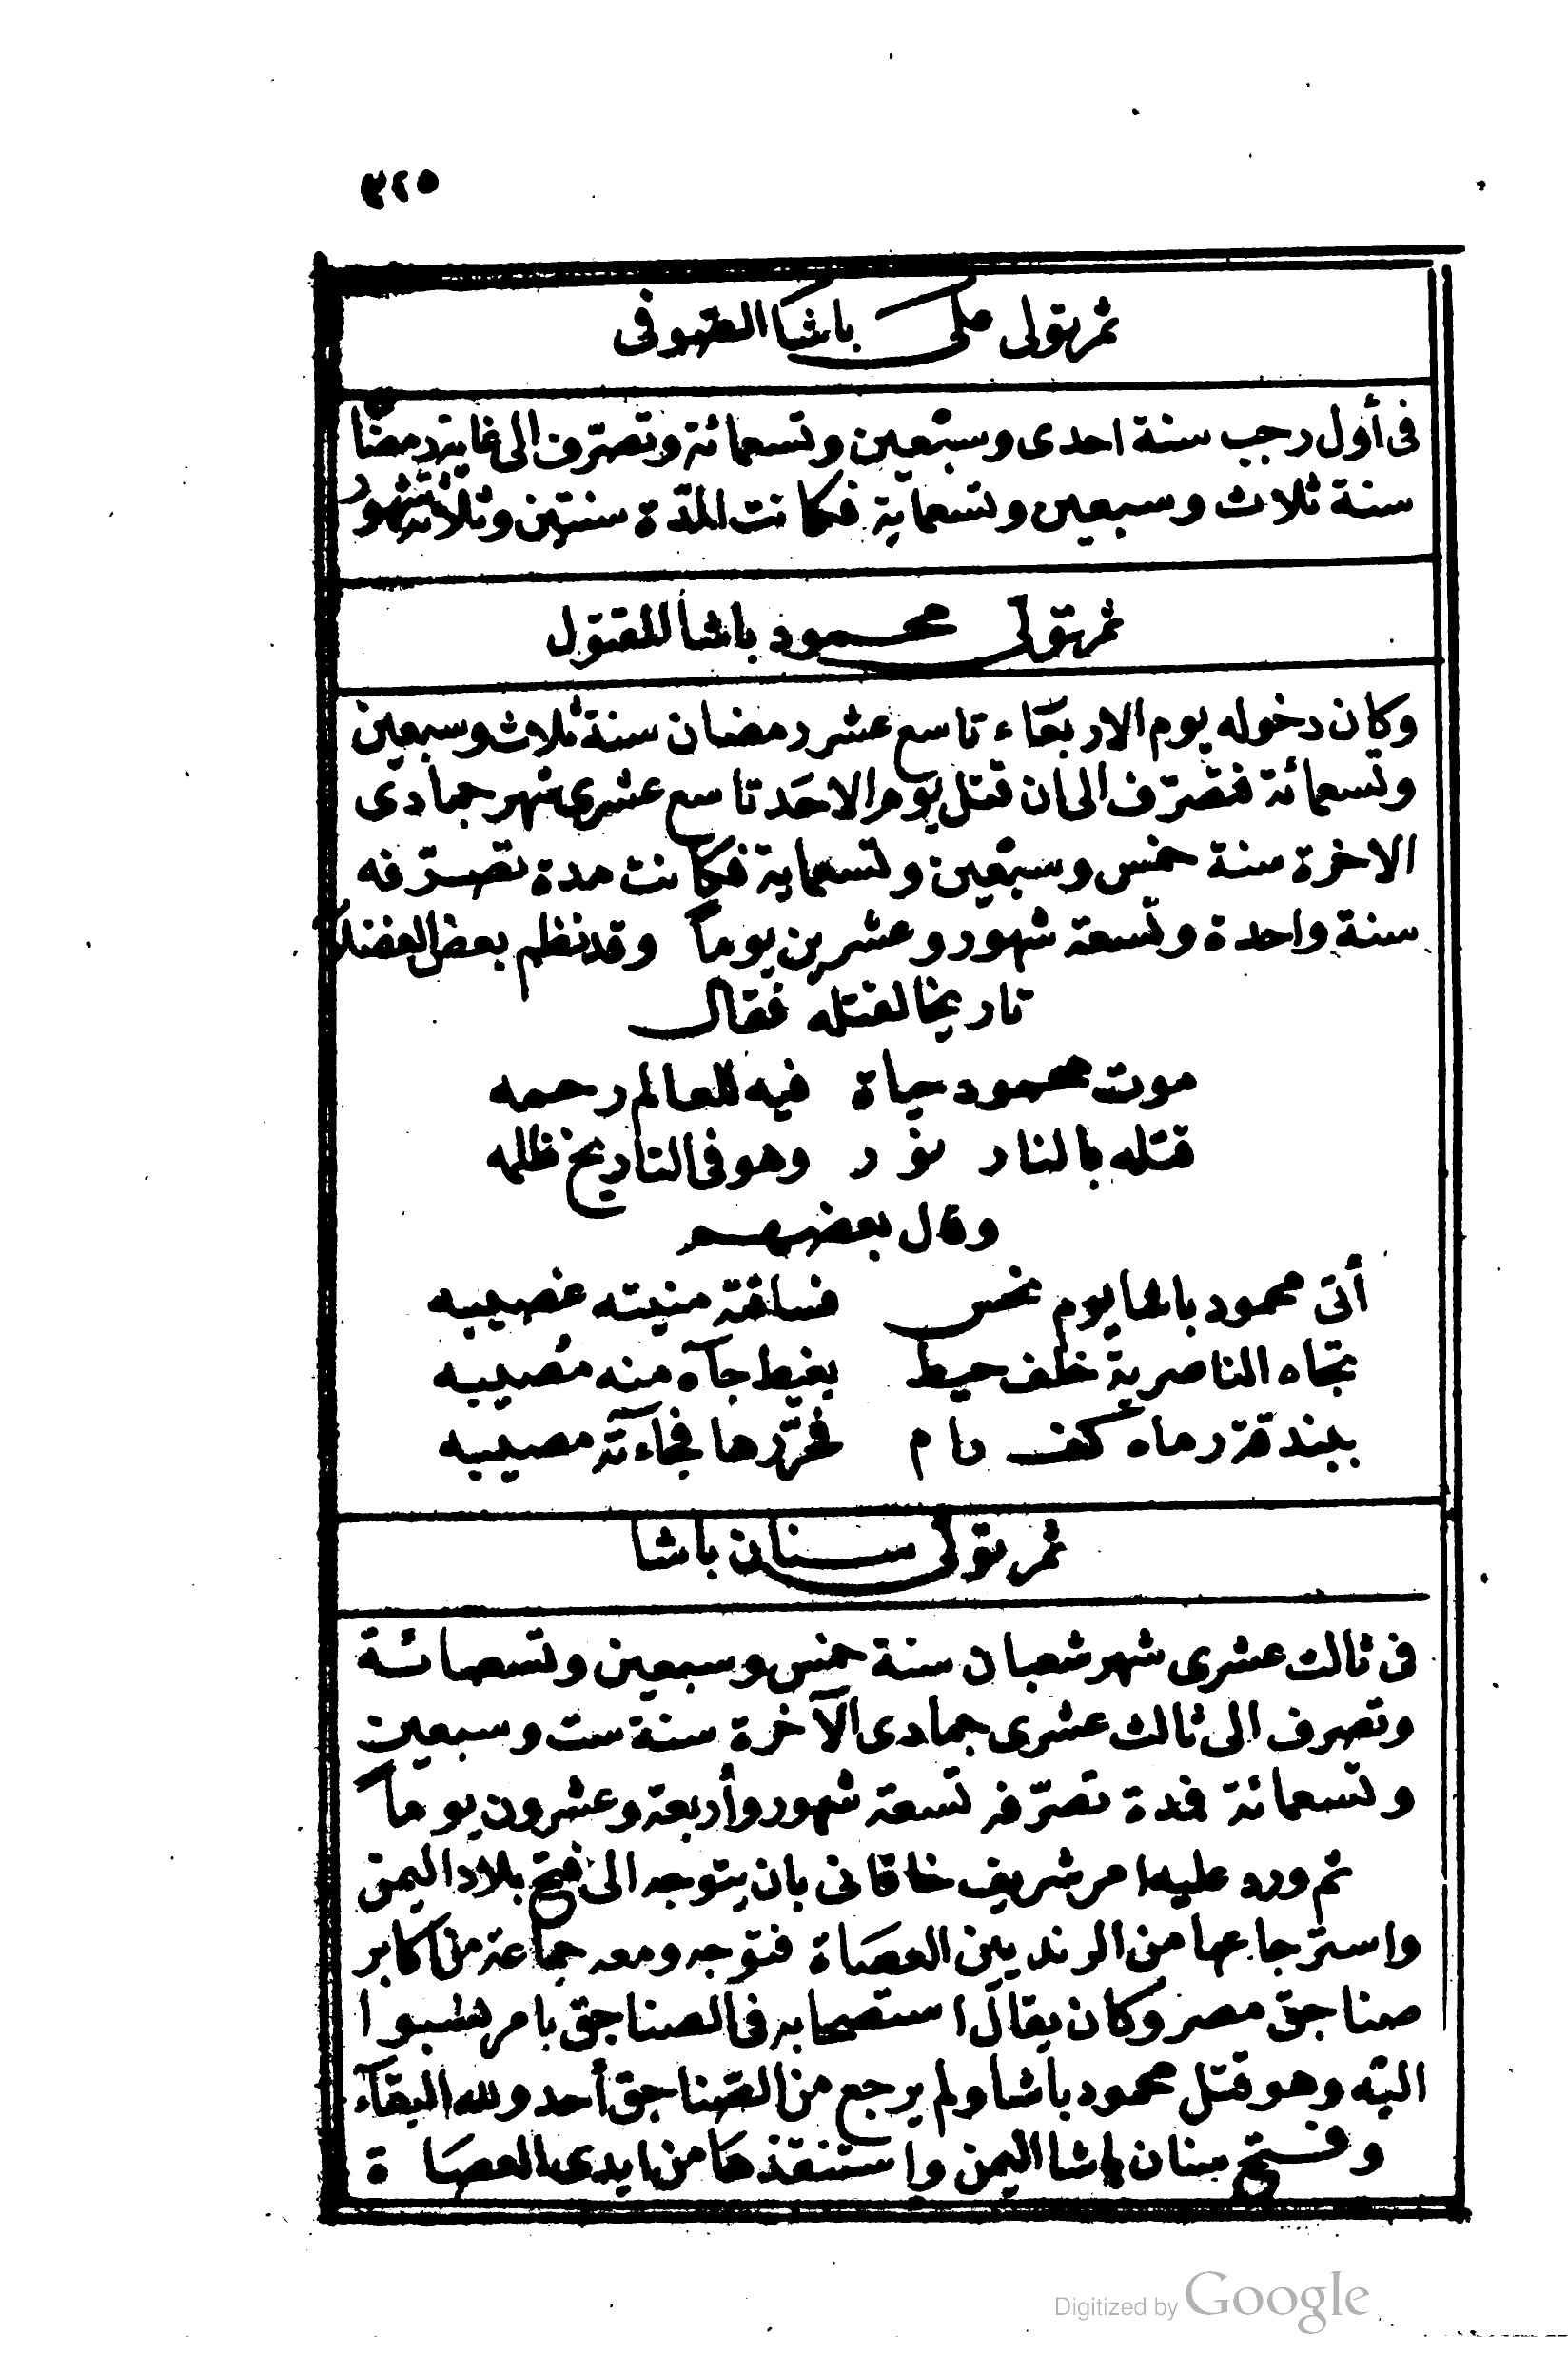 ٣٢٥
ثم تولى على باشا الصوفى
فى أول رجب سنة احدى وسبعين وتسعمائة وتصرّف الى غاية رمضان
سنة ثلاث وسبعين وتسعماية فكانت المدّة سنتين وثلاثة شهور
ثم تولى محمود باشا المقتول
وكان دخوله يوم الاربعاء تاسع عشر رمضان سنة ثلاث وسبعين
وتسعمائة فتصرّف الى ان قتل يوم الاحد تاسع عشرى شهر جمادى
الاخرة سنة خمس وسبعين وتسعماية فكانت مدة تصرّفه
سنة واحدة وتسعة شهور وعشرين يوماً وقد نظم بعض الفضلا
تاريخا لقتله فقال
موت محمود حياة فيه للعالم رحمه
قتله بالنار نور وهو فى التاريخ ظلمه
وقال بعضهم
أتى محمود باشا يوم نحس فساقته منيته غصيبه
تجاه الناصرية خلف حيط بغيط جآه منه مُصيبه
ببندقة رماه كف رام فحرّرها فجاءته مصيبه
ثم تولى سنان باشا
فى ثالث عشرى شهر شعبان سنة خمس وسبعين وتسعمائة
وتصرف الى ثالث عشرى جمادى الآخرة سنة ست وسبعين
وتسعمائة فمدة تصرّفه تسعة شهور وأربعة وعشرون يوماً
ثم ورد عليه امر شريف خاقانى بان يتوجه الى فتح بلاد اليمن
واسترجاعها من الزنديين العصاة فتوجه ومعه جماعة من اكابر
صناجق مصر وكان يقال استصحابه فى الصناجق بامر نسبوا
اليه وهو قتل محمود باشا ولم يرجع من الصناجق أحد ولله البقآء
وفتح سنان باشا اليمن واستنقذها من ايدى العصاة
Digitized by Google